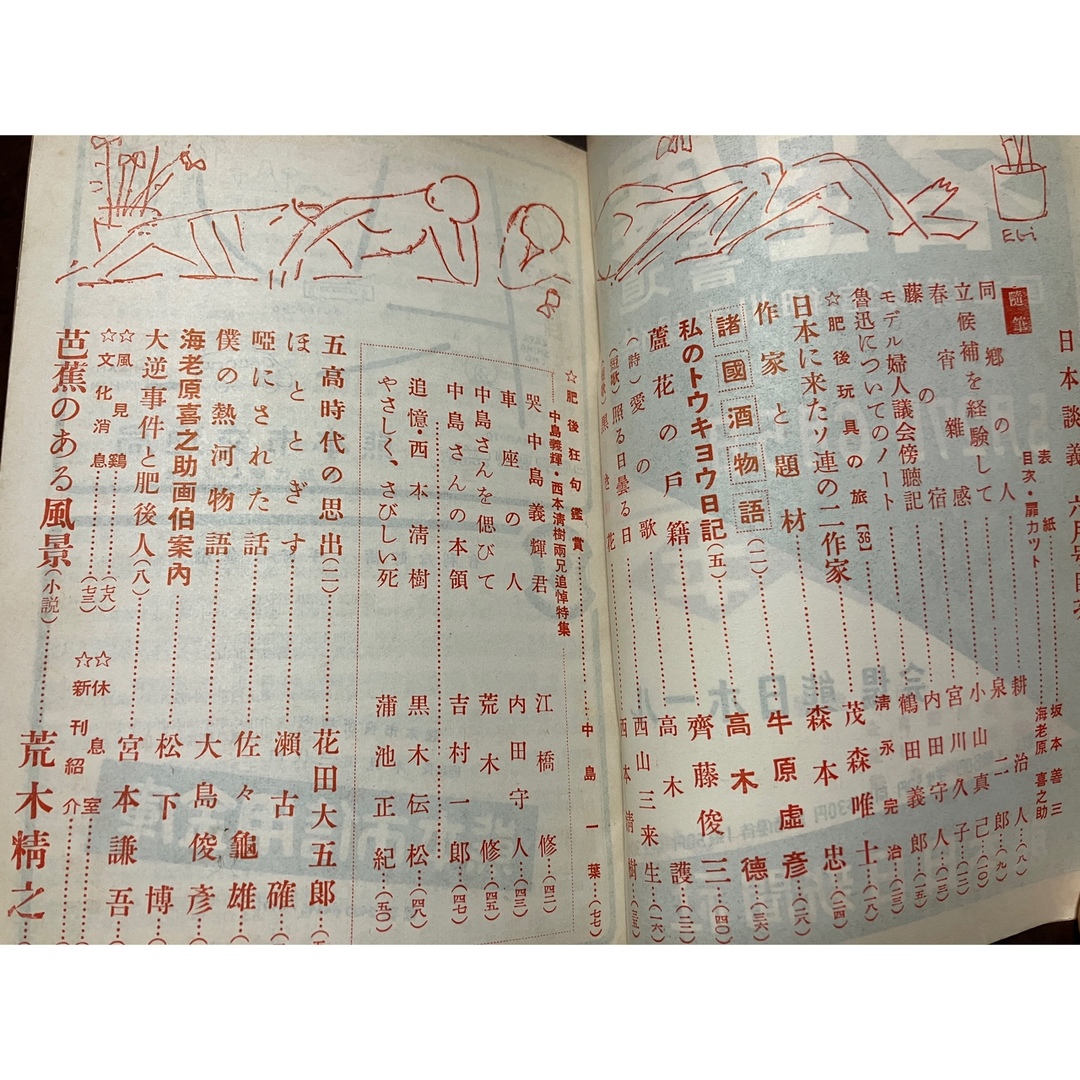 日本談義 六月号目次
表紙 坂本善三
目次・扉カット 海老原喜之助
Ebi
随筆
同郷の人 耕治人(八)
立候補を経験して 泉二郎(九)
春宵雑感 小山真己(一〇)
藤の宿 宮川久子
モデル婦人議会傍聴記 内田守人
魯迅についてのノート 鶴田義郎(一五)
☆肥後玩具の旅[36] 清永完治(二三)
日本に来たソ連の二作家 茂森唯士(一八)
作家と題材 森本忠(二四)
諸國酒物語(二) 牛原虚彦(二八)
私のトウキョウ日記(五) 高木徳(三六)
蘆花の戸籍 齊藤俊三(四〇)
(詩)愛の歌 高木護(二七)
(短歌)照る日曇る日 西山三来生(一六)
西本清樹(三三)
☆肥後狂句鑑賞 中島一葉(七七)
中島義輝・西本清樹兩兄追悼特集
哭中島義輝君 江橋修(四二)
車座の人 内田守人(四三)
中島さんを偲びて 荒木修(四五)
中島さんの本領 吉村一郎(四七)
追憶・西本清樹 黒木伝松(四八)
やさしく、さびしい死 蒲池正紀(五〇)
五高時代の思出(二) 花田大五郎
ほととぎす 瀬古確
啞にされた話 佐々亀雄
僕の熱河物語 大島俊彦
海老原喜之助画伯案内
大逆事件と肥後人(八) 宮本謙吾
松下博
☆風見鶏(七八)
☆文化消息(七三)
☆休息室
☆新刊紹介
芭蕉のある風景(小説) 荒木精之